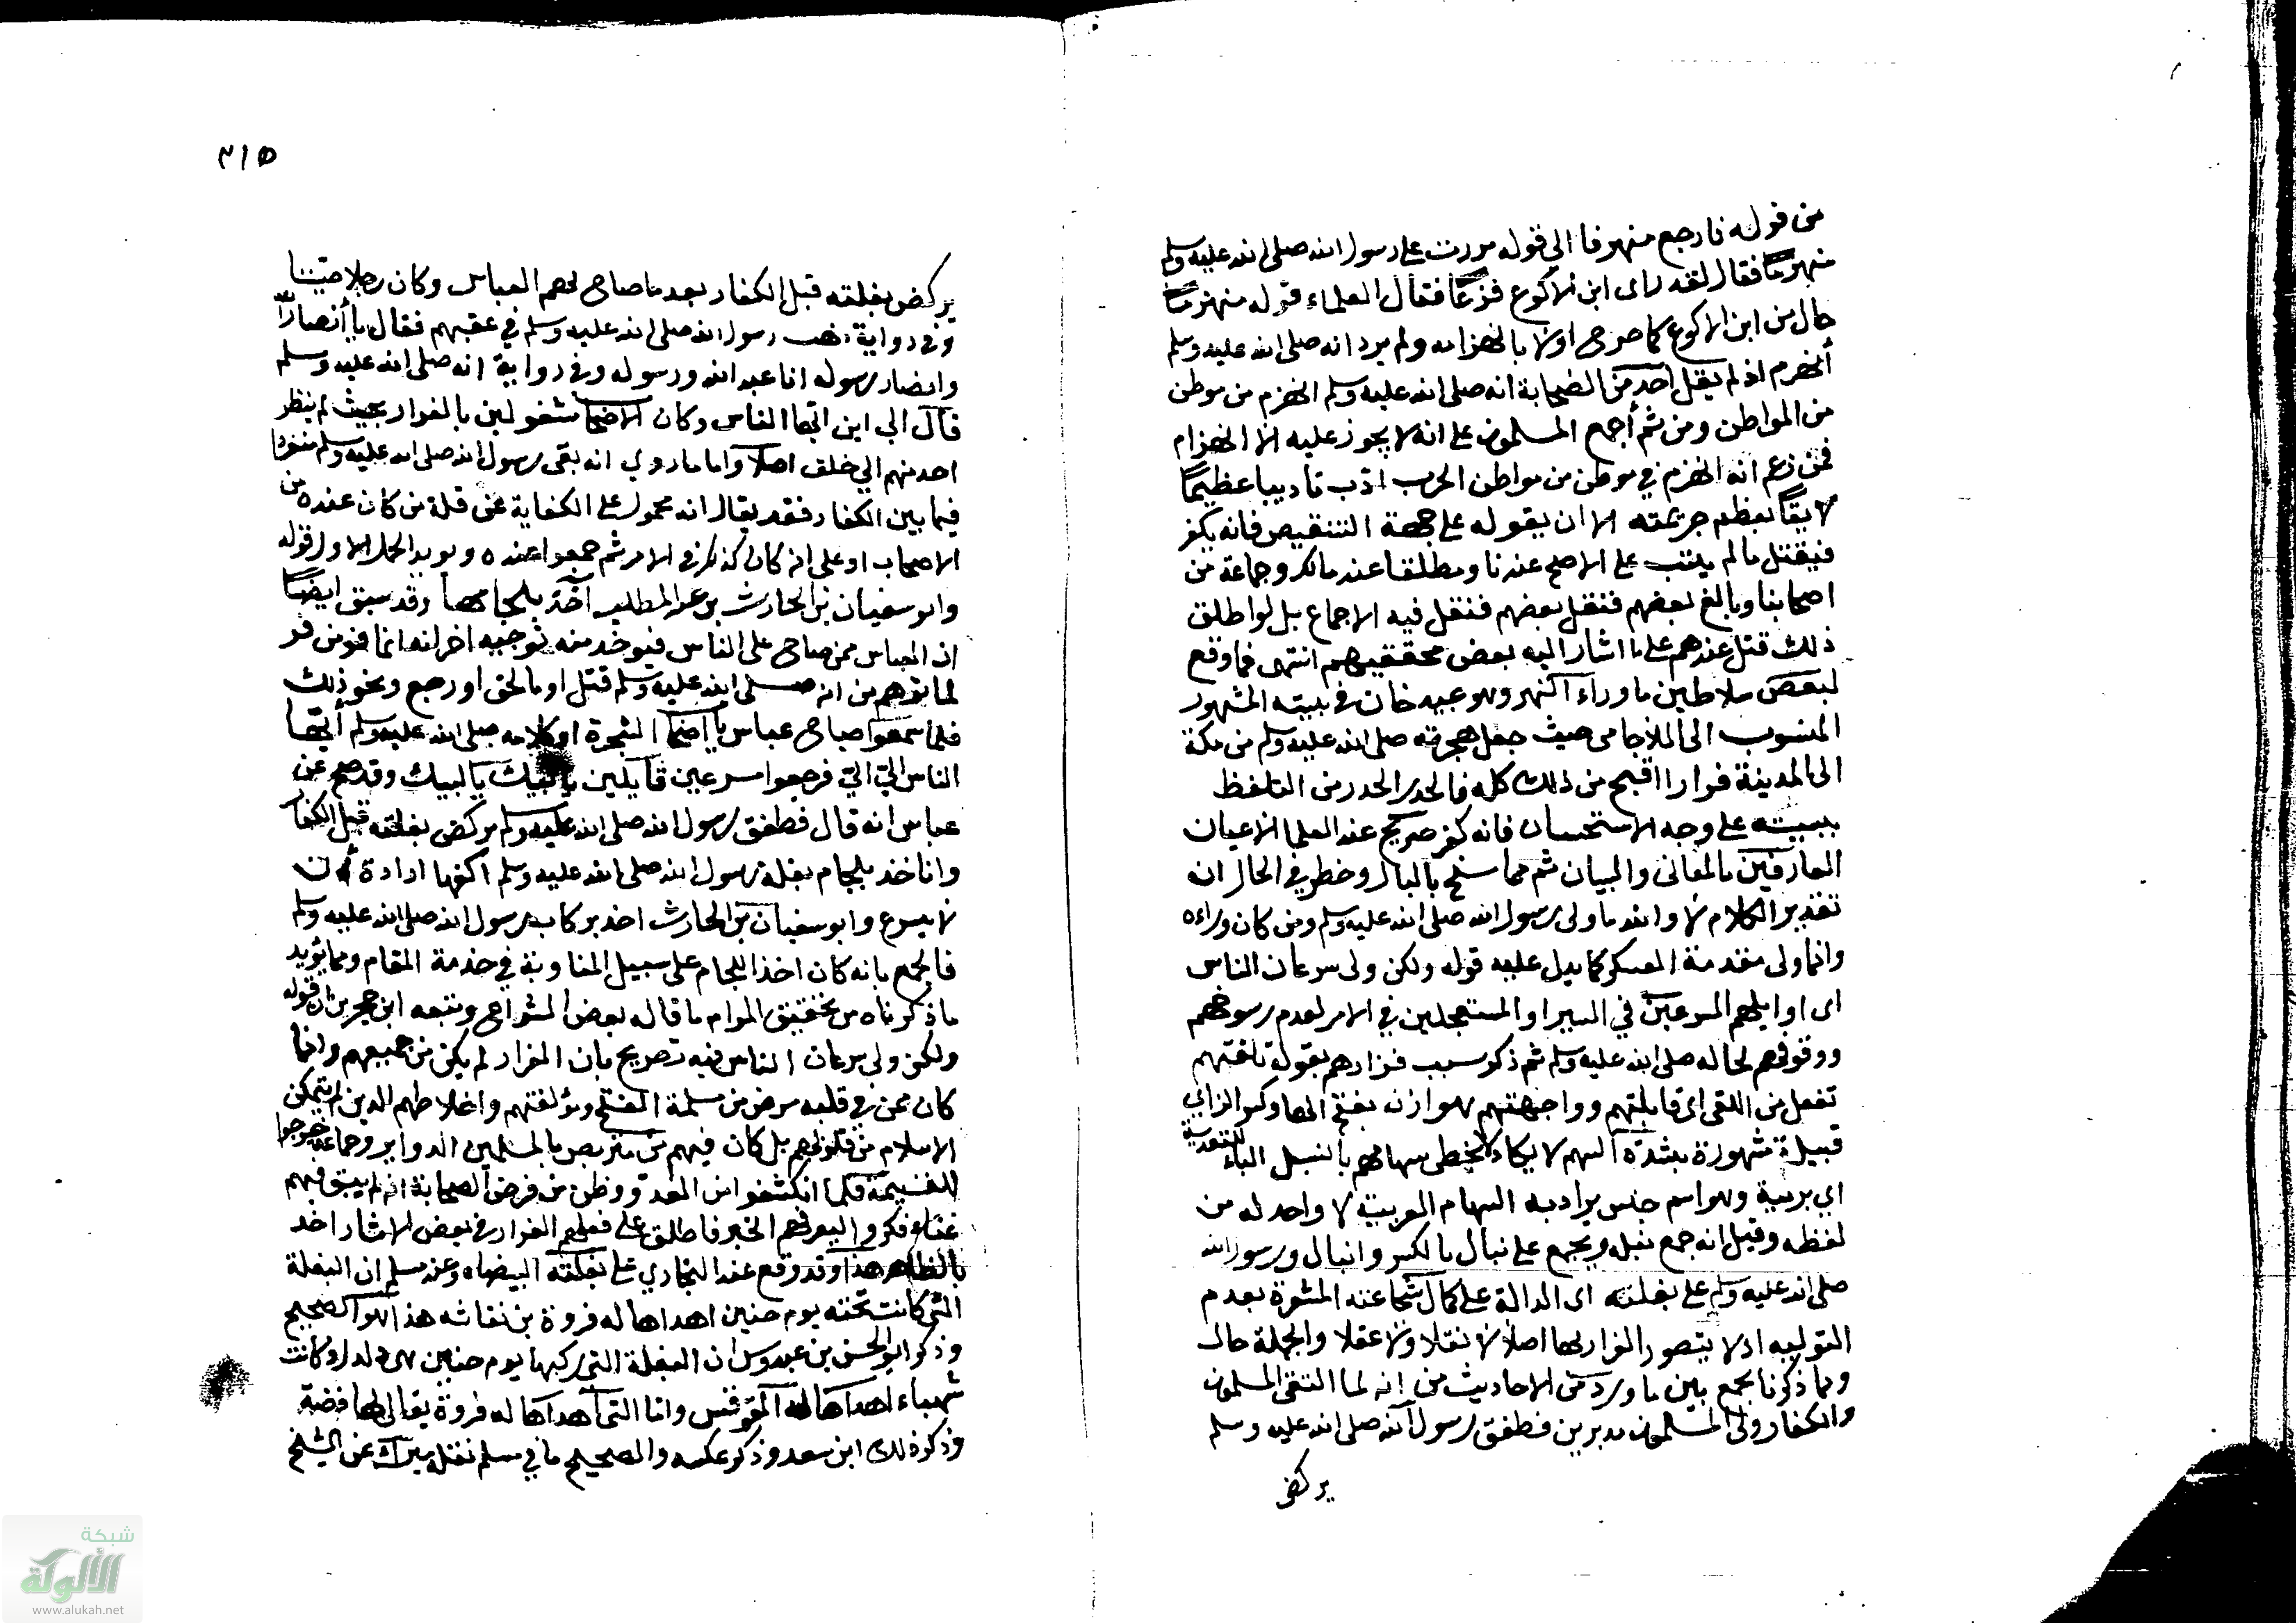 من قوله فارجع منهزما الي قوله مررت على رسول الله صلى الله عليه وسلم
منهزمًا فقال لقد راى ابن الاكوع فزعًا فقال العلماء قوله منهزمًا
حال من ابن الاكوع كما صرح اولا بانهزامه ولم يرد انه صلى الله عليه وسلم
انهزم اذ لم يقل احد من الصحابة انه صلى الله عليه وسلم انهزم من موطن
من المواطن ومن ثم أجمع المسلمون على انه لا يجوز عليه الانهزام
فمن زعم انه انهزم في موطن من مواطن الحرب ادّب تاديبا عظيمًا
لايقًا بعظم جريمته الا ان يقوله على جهة التنقيص فانه يكفر
فيقتل مالم يتب على الاصح عندنا ومطلقا عند مالك وجماعة من
اصحابنا وبالغ بعضهم فنقل بعضهم فنقل فيه الاجماع بل لو اطلق
ذلك قتل عندهم على ما اشار اليه بعض محققيهم انتهى فما وقع
لبعض سلاطين ما وراء النهر وهو عبيد خان في بيته المشهور
المنسوب الى الملا جامى حيث جعل هجرته صلى الله عليه وسلم من مكة
الى المدينة فرارا اقبح من ذلك كله فالحذر الحذر من التلفظ
ببيته على وجه الاستحسان فانه كفر صريح عند العلما الاعيان
العارفين بالمعانى والبيان ثم مما سنح بالبال وخطر في الحال ان
تقدير الكلام لا والله ما ولى رسول الله صلى الله عليه وسلم ومن كان وراءه
وانما ولى مقدمة العسكر كما يدل عليه قوله ولكن ولى سرعان الناس
اى اوايلهم المسرعين في السير او المستعجلين في الامر لعدم رسوخهم
ووقوفهم لحاله صلى الله عليه وسلم ثم ذكر سبب فرارهم بقوله تلقتهم
تفعل من اللقى اى قابلتهم وواجهتهم هوازن بفتح الهاء وكسر الزاي
قبيلة مشهورة بشدة السهم لا يكاد يخطى سهامهم بالنبل الباء للتعدية
اي برمية وهو اسم جنس يراد به السهام العربية لا واحد له من
لفظه وقيل انه جمع نبلة ويجمع على نبال بالكسر وانبال ورسول الله
صلى الله عليه وسلم على بغلته اى الدالة على كمال شجاعته المشعرة بعدم
التوليه اذ لا يتصور الفرار بها اصلا لا نقلا ولا عقلا والجملة حال
وبما ذكرنا يجمع بين ما ورد من الاحاديث من انه لما التقى المسلمون
والكفار ولى المسلمون مدبرين فطفق رسول الله صلى الله عليه وسلم
يركض
٣١٥
يركض بغلته قبل الكفار بعد ما صاح لهم العباس وكان رجلا صيّتنا
وفي رواية ذهب رسول الله صلى الله عليه وسلم في عقبهم فقال يا أنصار الله
وانصار رسوله انا عبد الله ورسوله وفي رواية انه صلى الله عليه وسلم
قال الى اين ايها الناس وكان الاصحاب مشغولين بالفرار بحيث لم ينظر
احد منهم الي خلف اصلا واما ما روي انه بقى رسول الله صلى الله عليه وسلم منفردا
فيما بين الكفار فقد يقال انه محمول على الكفاية عن قلة من كان عنده من
الاصحاب او على انه كان كذلك في الامر ثم جمعوا عنده ويويد الحمل الاول قوله
وابو سفيان بن الحارث بن عبد المطلب آخذ بلجامها وقد سبق ايضًا
ان العباس ممن صاح على الناس فيوخذ منه توجيه اخر انه انما فر من فر
لما توهم من انه صلى الله عليه وسلم قتل او بالحق او رجع ونحو ذلك
فلما سمعوا صياح عباس يا اصحاب الشجرة او كلامه صلى الله عليه وسلم أيها
الناس اليّ اليّ فرجعوا مسرعين قايلين يا لبيك يا لبيك وقد صح عن
عباس انه قال فطفق رسول الله صلى الله عليه وسلم يركض بغلته قبل الكفار
وانا اخذ بلجام بغلة رسول الله صلى الله عليه وسلم اكفها ارادة أن
لا يسرع وابو سفيان بن الحارث اخذ بركاب رسول الله صلى الله عليه وسلم
فالجمع بانه كان اخذ اللجام على سبيل المناوبة في خدمة المقام ومما يؤيد
ما ذكرناه من تحقيق المرام ما قاله بعض الشراح وتبعه ابن حجر من ان قوله
ولكن ولى سرعان الناس فيه تصريح بان الفرار لم يكن من جميعهم وانما
كان ممن في قلبه مرض من مسلمة الفتح ومؤلفتهم واخلاطهم الدين لم يتمكن
الاسلام من قلوبهم بل كان فيهم من يتربص بالمسلمين الدواير وجماعة خرجوا
للغنيمة فلما انكشفوا من العدو وظن من فر من الصحابة انه لم يبق فيهم
غناء فكروا ليعرفهم الخبر فاطلق على فعلهم الفرار في بعض الاثار اخذ
بالظاهر هذا وقد وقع عند البخاري على بغلته البيضاء وعند مسلم ان البغلة
التي كانت تحته يوم حنين اهداها له فروة بن نفاثه هذا هو الصحيح
وذكر ابو الحسن بن عبدوس ان البغلة التي ركبها يوم حنين هى دلدل وكانت
شهباء اهداها له المقوقس وانا التى اهداها له فروة يقال لها فضة
وذكر ذلك ابن سعد وذكر عكسه والصحيح ما في مسلم نقله ميرك عن الشيخ
شبكة
الألوكة
www.alukah.net